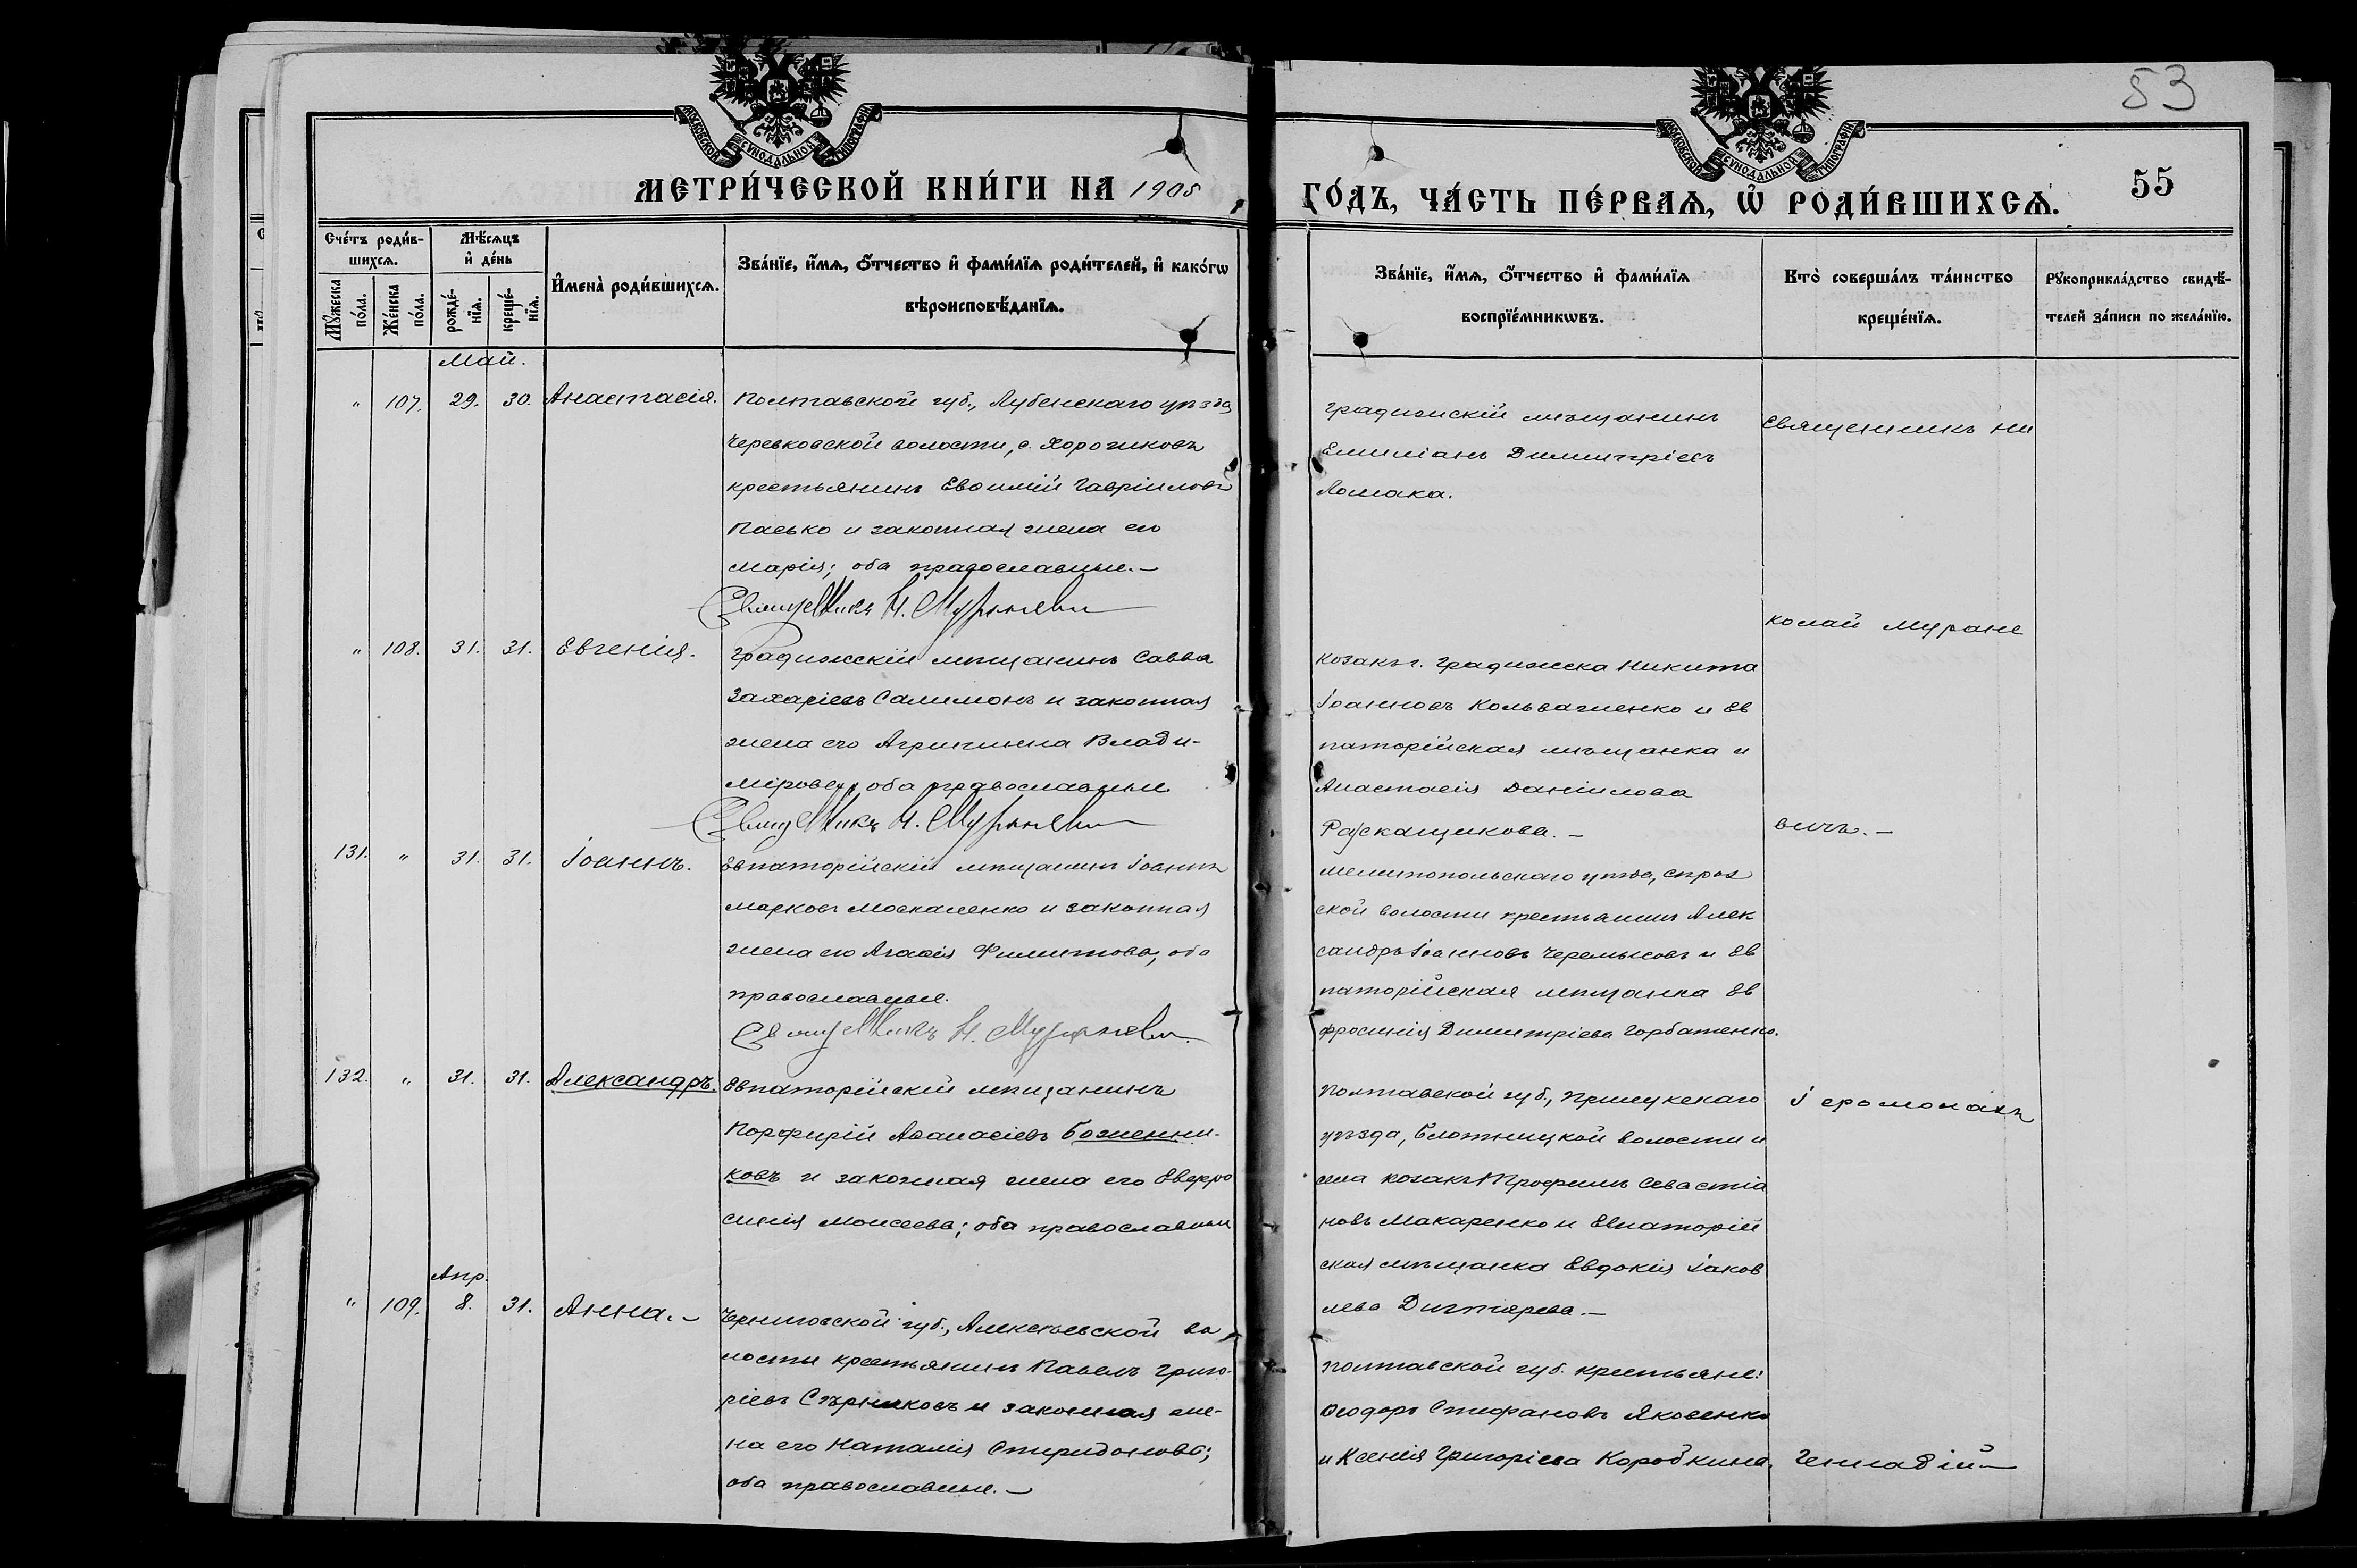 53
55
МОСКОВСКОЙ СѴНОДАЛЬНОЙ ТИПОГРАФІИ
МОСКОВСКОЙ СѴНОДАЛЬНОЙ ТИПОГРАФІИ
МЕТРИ́ЧЕСКОЙ КНИ́ГИ НА 1905 ГО́ДЪ, ЧА́СТЬ ПЕ́РВАѦ, Ѡ҆ РОДИ́ВШИХСѦ.
Сче́тъ роди́в-
шихсѧ.
Мѣ́сѧцъ
и҆ де́нь
Мꙋ́жеска по́ла.
Же́нска по́ла.
рожде́-нїѧ.
креще́-нїѧ.
И҆мена̀ роди́вшихсѧ.
Зва́нїе, и҆́мѧ, ѻ҆́тчество и҆ фами́лїѧ роди́телей, и҆ како́гѡ
вѣроисповѣ́данїѧ.
Зва́нїе, и҆́мѧ, ѻ҆́тчество и҆ фами́лїѧ
воспрїе́мникѡвъ.
Кто̀ соверша́лъ та́инство
креще́нїѧ.
Рꙋкоприкла́дство свидѣ́-
телей за́писи по жела́нїю.
Май.
" 107. 29. 30. Анастасія.
Полтавской губ., Лубенскаго уѣзда
Черевковской волости, с.
крестьянинъ Евѳимій Гавріиловъ
Пасько и законная жена его
Марія; оба православные.—
Священникъ Н. Мураневи
Градижскій мѣщанинъ
Емиліанъ Димитріевъ
Ломака.
Священникъ Ни
" 108. 31. 31. Евгенія.
Градижскій мѣщанинъ Савва
Захаріевъ Салимонъ и законная
жена его Агрипина Влади-
мірова, оба православные
Священникъ Н. Мураневи
Козакъ г. Градижска Никита
Іоанновъ и Ев
паторійская мѣщанка и
Анастасія Даніилова
Рускащикова.—
колай Муране
вичъ.—
131. " 31. 31. Іоаннъ.
Евпаторійскій мѣщанинъ Іоаннъ
Марковъ Москаленко и законная
жена его Агаѳія Филиппова, оба
православные.
Священникъ Н. Мураневи
Мелитопольскаго уѣзда,
ской волости крестьянинъ Алек
сандръ Іоанновъ и Ев
паторійская мѣщанка Ев
фросинія Димитріева Горбатенко.
132. " 31. 31. Александръ.
Евпаторійскій мѣщанинъ
Порфирій Аѳанасіевъ Боженни-
ковъ и законная жена его Евфро
синія Моисеева; оба православные
Полтавской губ., Прилукскаго
уѣзда, волости и
села козакъ Трофимъ Севастіа
новъ Макаренко и Евпаторій
ская мѣщанка Евдокія Іаков
лева Дигтярева.—
Іеромонахъ
Апр.
" 109. 8. 31. Анна.—
Черниговской губ., Алексѣевской во
лости крестьянинъ Павелъ Григо-
ріевъ и законная же-
на его Наталія Спиридонова;
оба православные.—
Полтавской губ. крестьяне:
Ѳеодоръ Стефановъ Яковенко
и Ксенія Григоріева Коробкина.
Геннадій—